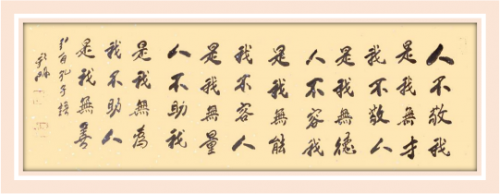 人不敬我
是我無才
我不敬人
是我無德
人不容我
是我無能
我不容人
是我無量
人不助我
是我無為
我不助人
是我無善
孔子語